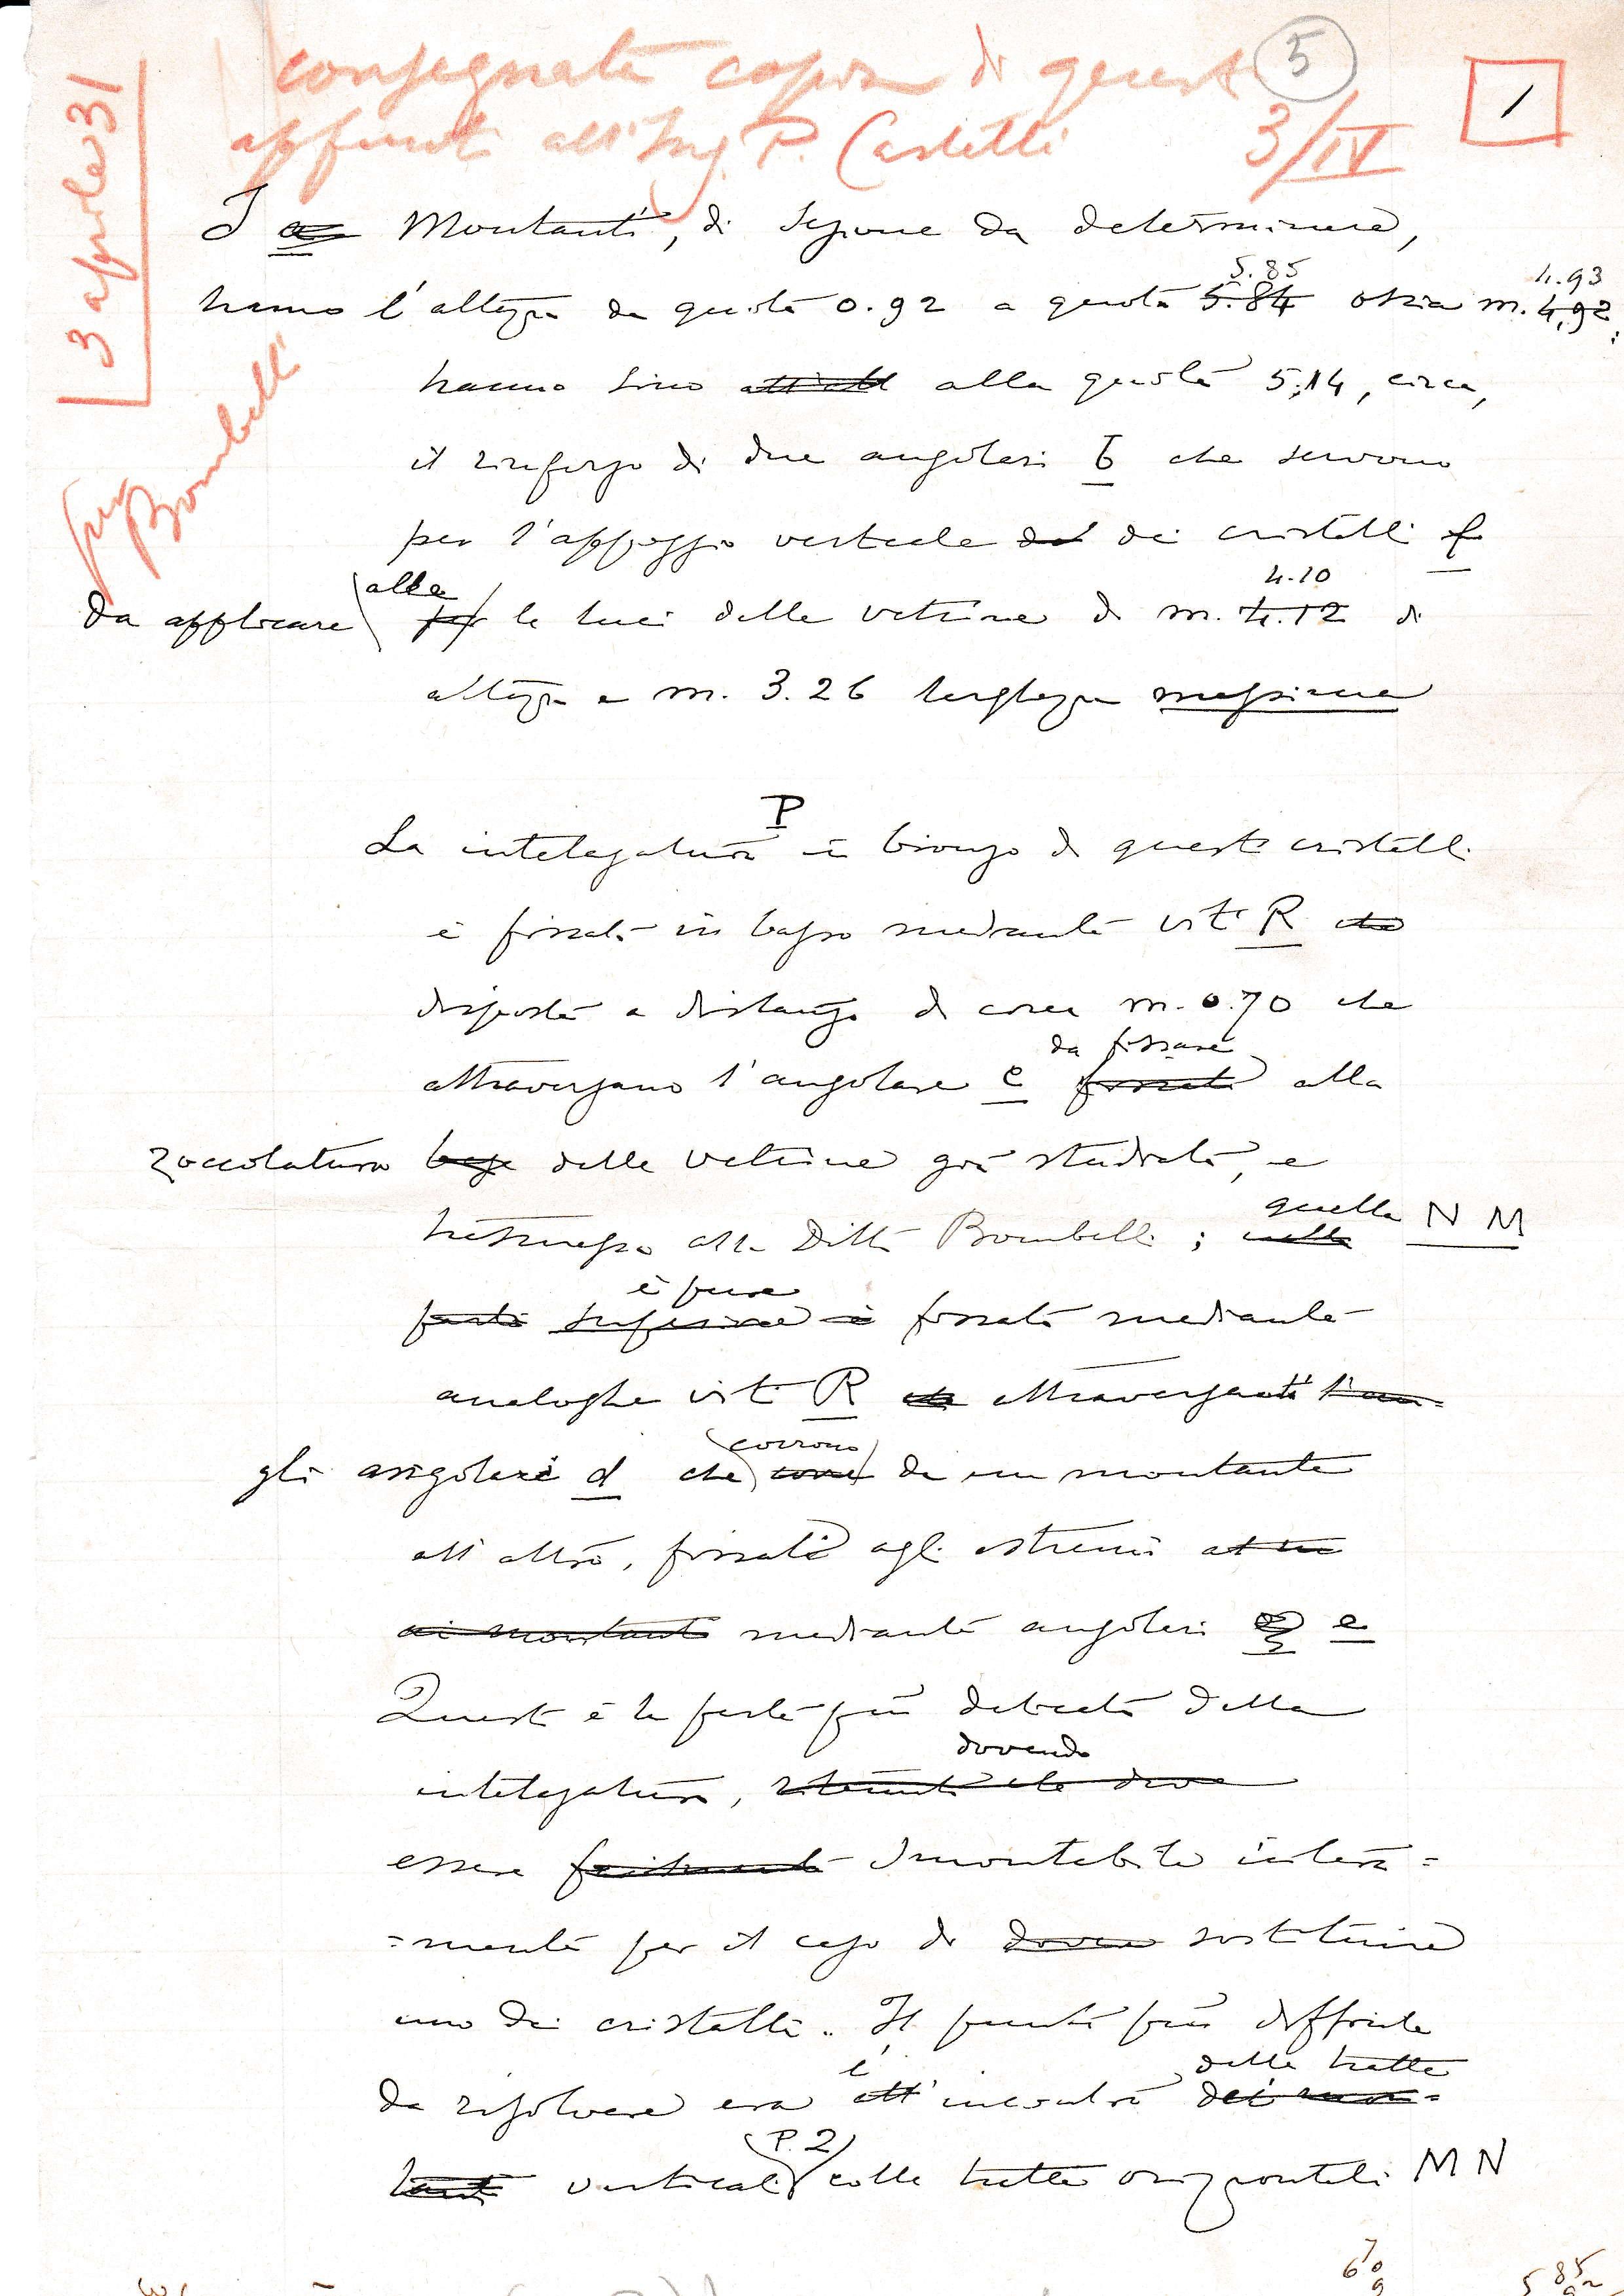 consegnata copia di questi 5
appunti all'Ing. P. Castelli 3/IV
1
3 aprile 31
Ing Bombelli
I a Montanti, di sezione da determinare,
5.85 4.93
hanno l'altezza da quota 0.92 a quota 5.84 ossia m. 4,92;
hanno sino alla quota 5,14, circa,
il rinforzo di due angolari b che servono
per l'appoggio verticale dei dei cristalli f
alle 4.10
da applicare per le luci delle vetrine di m. 4.12 di
altezza e m. 3.26 larghezza massima
P
La intelajatura in bronzo di questi cristalli
è fissata in basso mediante viti R che
disposte a distanza di circa m. 0.70 che
da fissare
attraversano l'angolare c fissato alla
zoccolatura base delle vetrine già studiata, e
quella N M
trasmessa alla Ditta Bombelli; nella
è pure
parte superiore è fissata mediante
analoghe viti R che attraversanti l'an=
corrono
gli angolari d che corre da un montante
all'altro, fissati agli estremi
ai montanti mediante angolari e
Questa è la parte più delicata della
dovendo
intelajatura, che deve
essere facilmente smontabile intera=
=mente per il caso di dover sostituire
uno dei cristalli. Il punto più difficile
l' delle tratte
da risolvere era all'incontro dei mon=
P. 2
tanti verticali colle tratte orizzontali MN
6 7 0 9
5 85 92